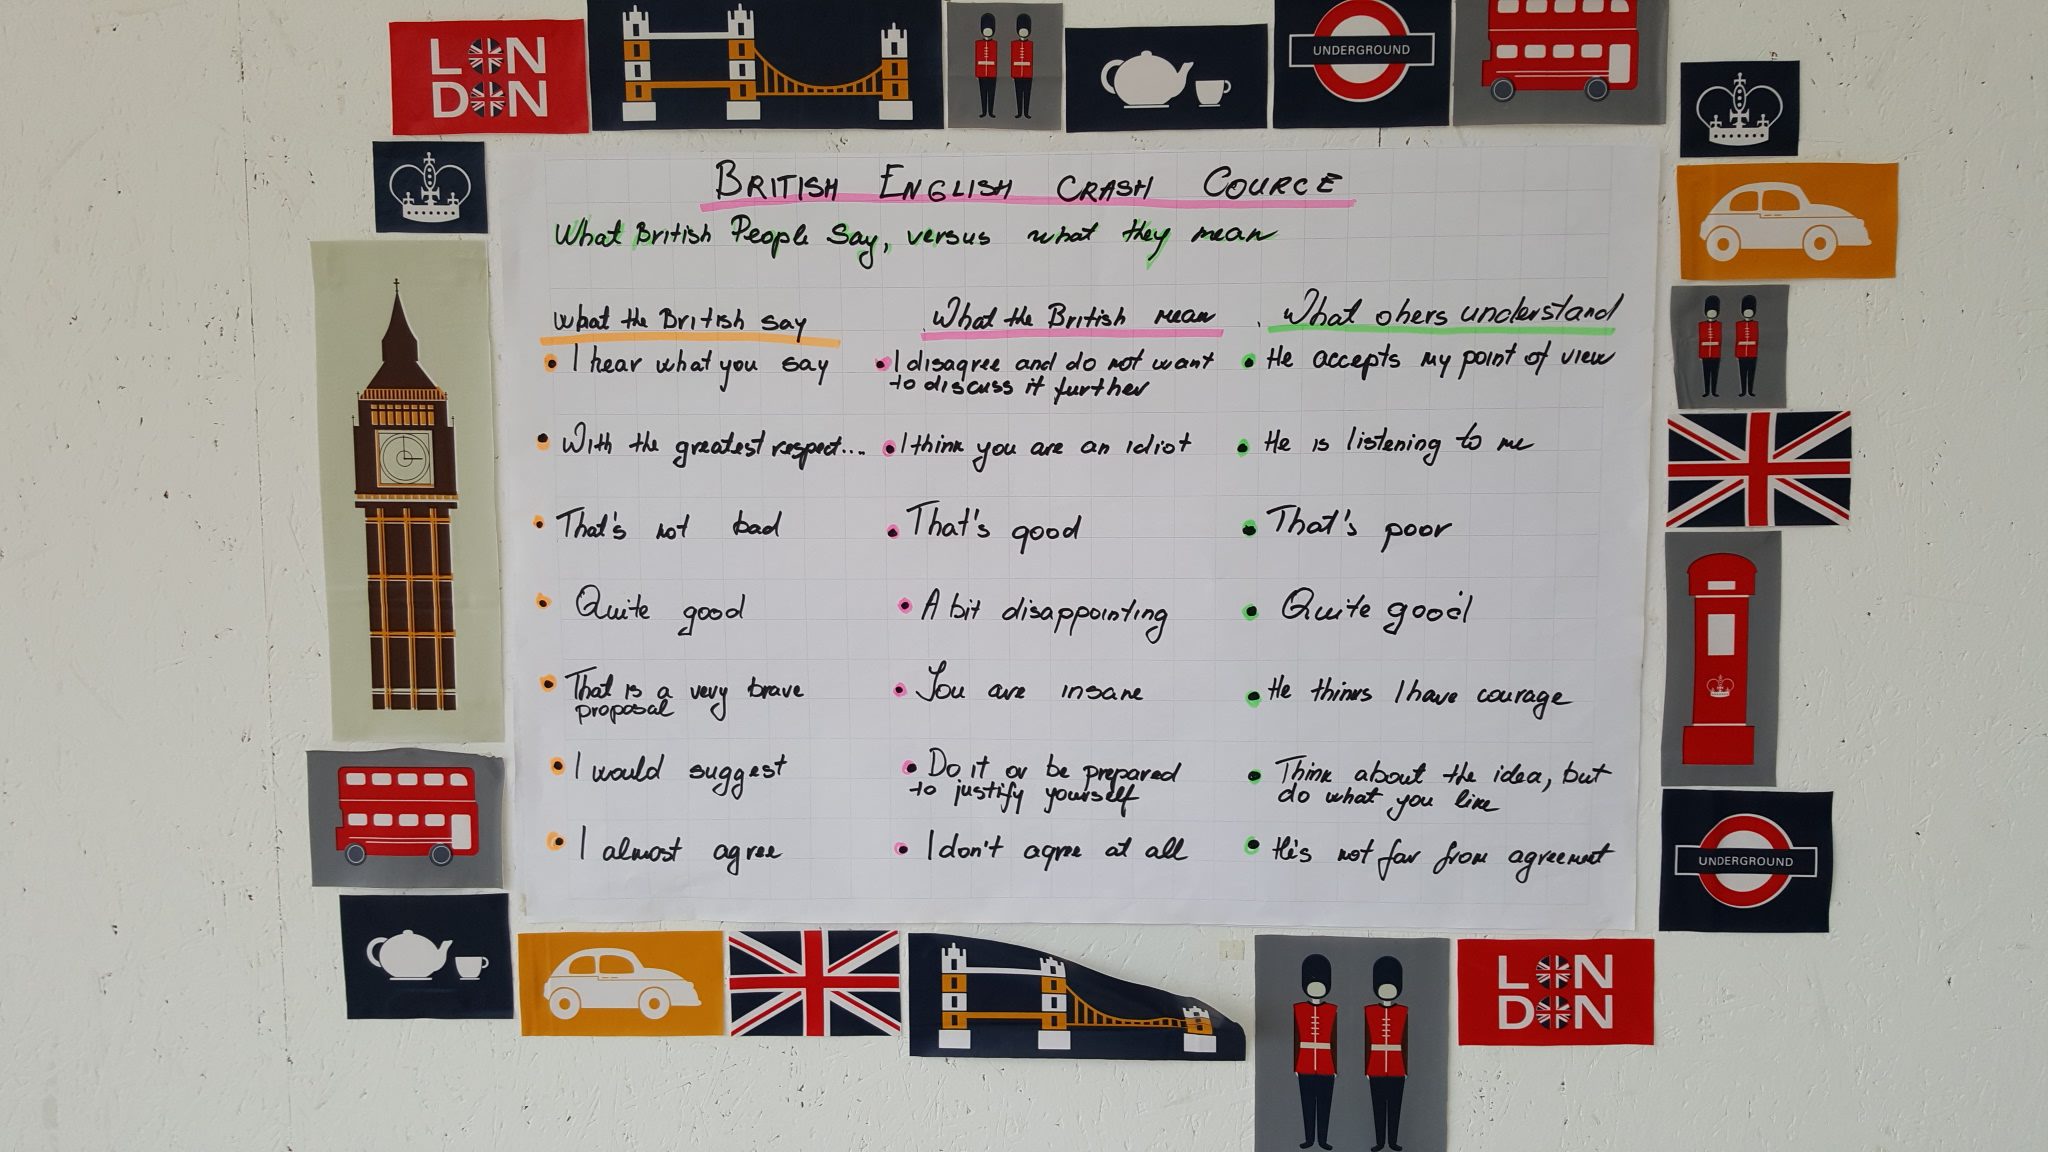 LONDON
UNDERGROUND
BRITISH ENGLISH CRASH COURCE
What British People Say, versus what they mean
What the British say
What the British mean
What ohers understand
• I hear what you say
• I disagree and do not want
to discuss it further
• He accepts my point of view
• With the greatest respect...
• I think you are an idiot
• He is listening to me
• That's not bad
• That's good
• That's poor
• Quite good
• A bit disappointing
• Quite good
• That is a very brave
proposal
• You are insane
• He thinks I have courage
• I would suggest
• Do it or be prepared
to justify yourself
• Think about the idea, but
do what you like
• I almost agree
• I don't agree at all
• He's not far from agreement
UNDERGROUND
LONDON